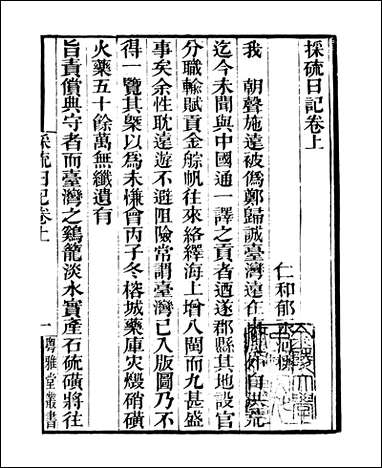 採硫日記卷上
仁和郁
我 朝聲施遠被偽鄭歸誠臺灣遠在東外自洪荒
迄今未聞與中國通一譯之貢者迺遂郡縣其地設官
分職輸賦貢金艅帆往來絡繹海上增八閩而九甚盛
事矣余性耽遠遊不避阻險常謂臺灣已入版圖乃不
得一覽其槩以為未慊會丙子冬榕城藥庫災燬硝磺
火藥五十餘萬無纖遺有
旨責償典守者而臺灣之鷄籠淡水實產石硫磺將往
採硫日記卷上 一 粵雅堂叢書